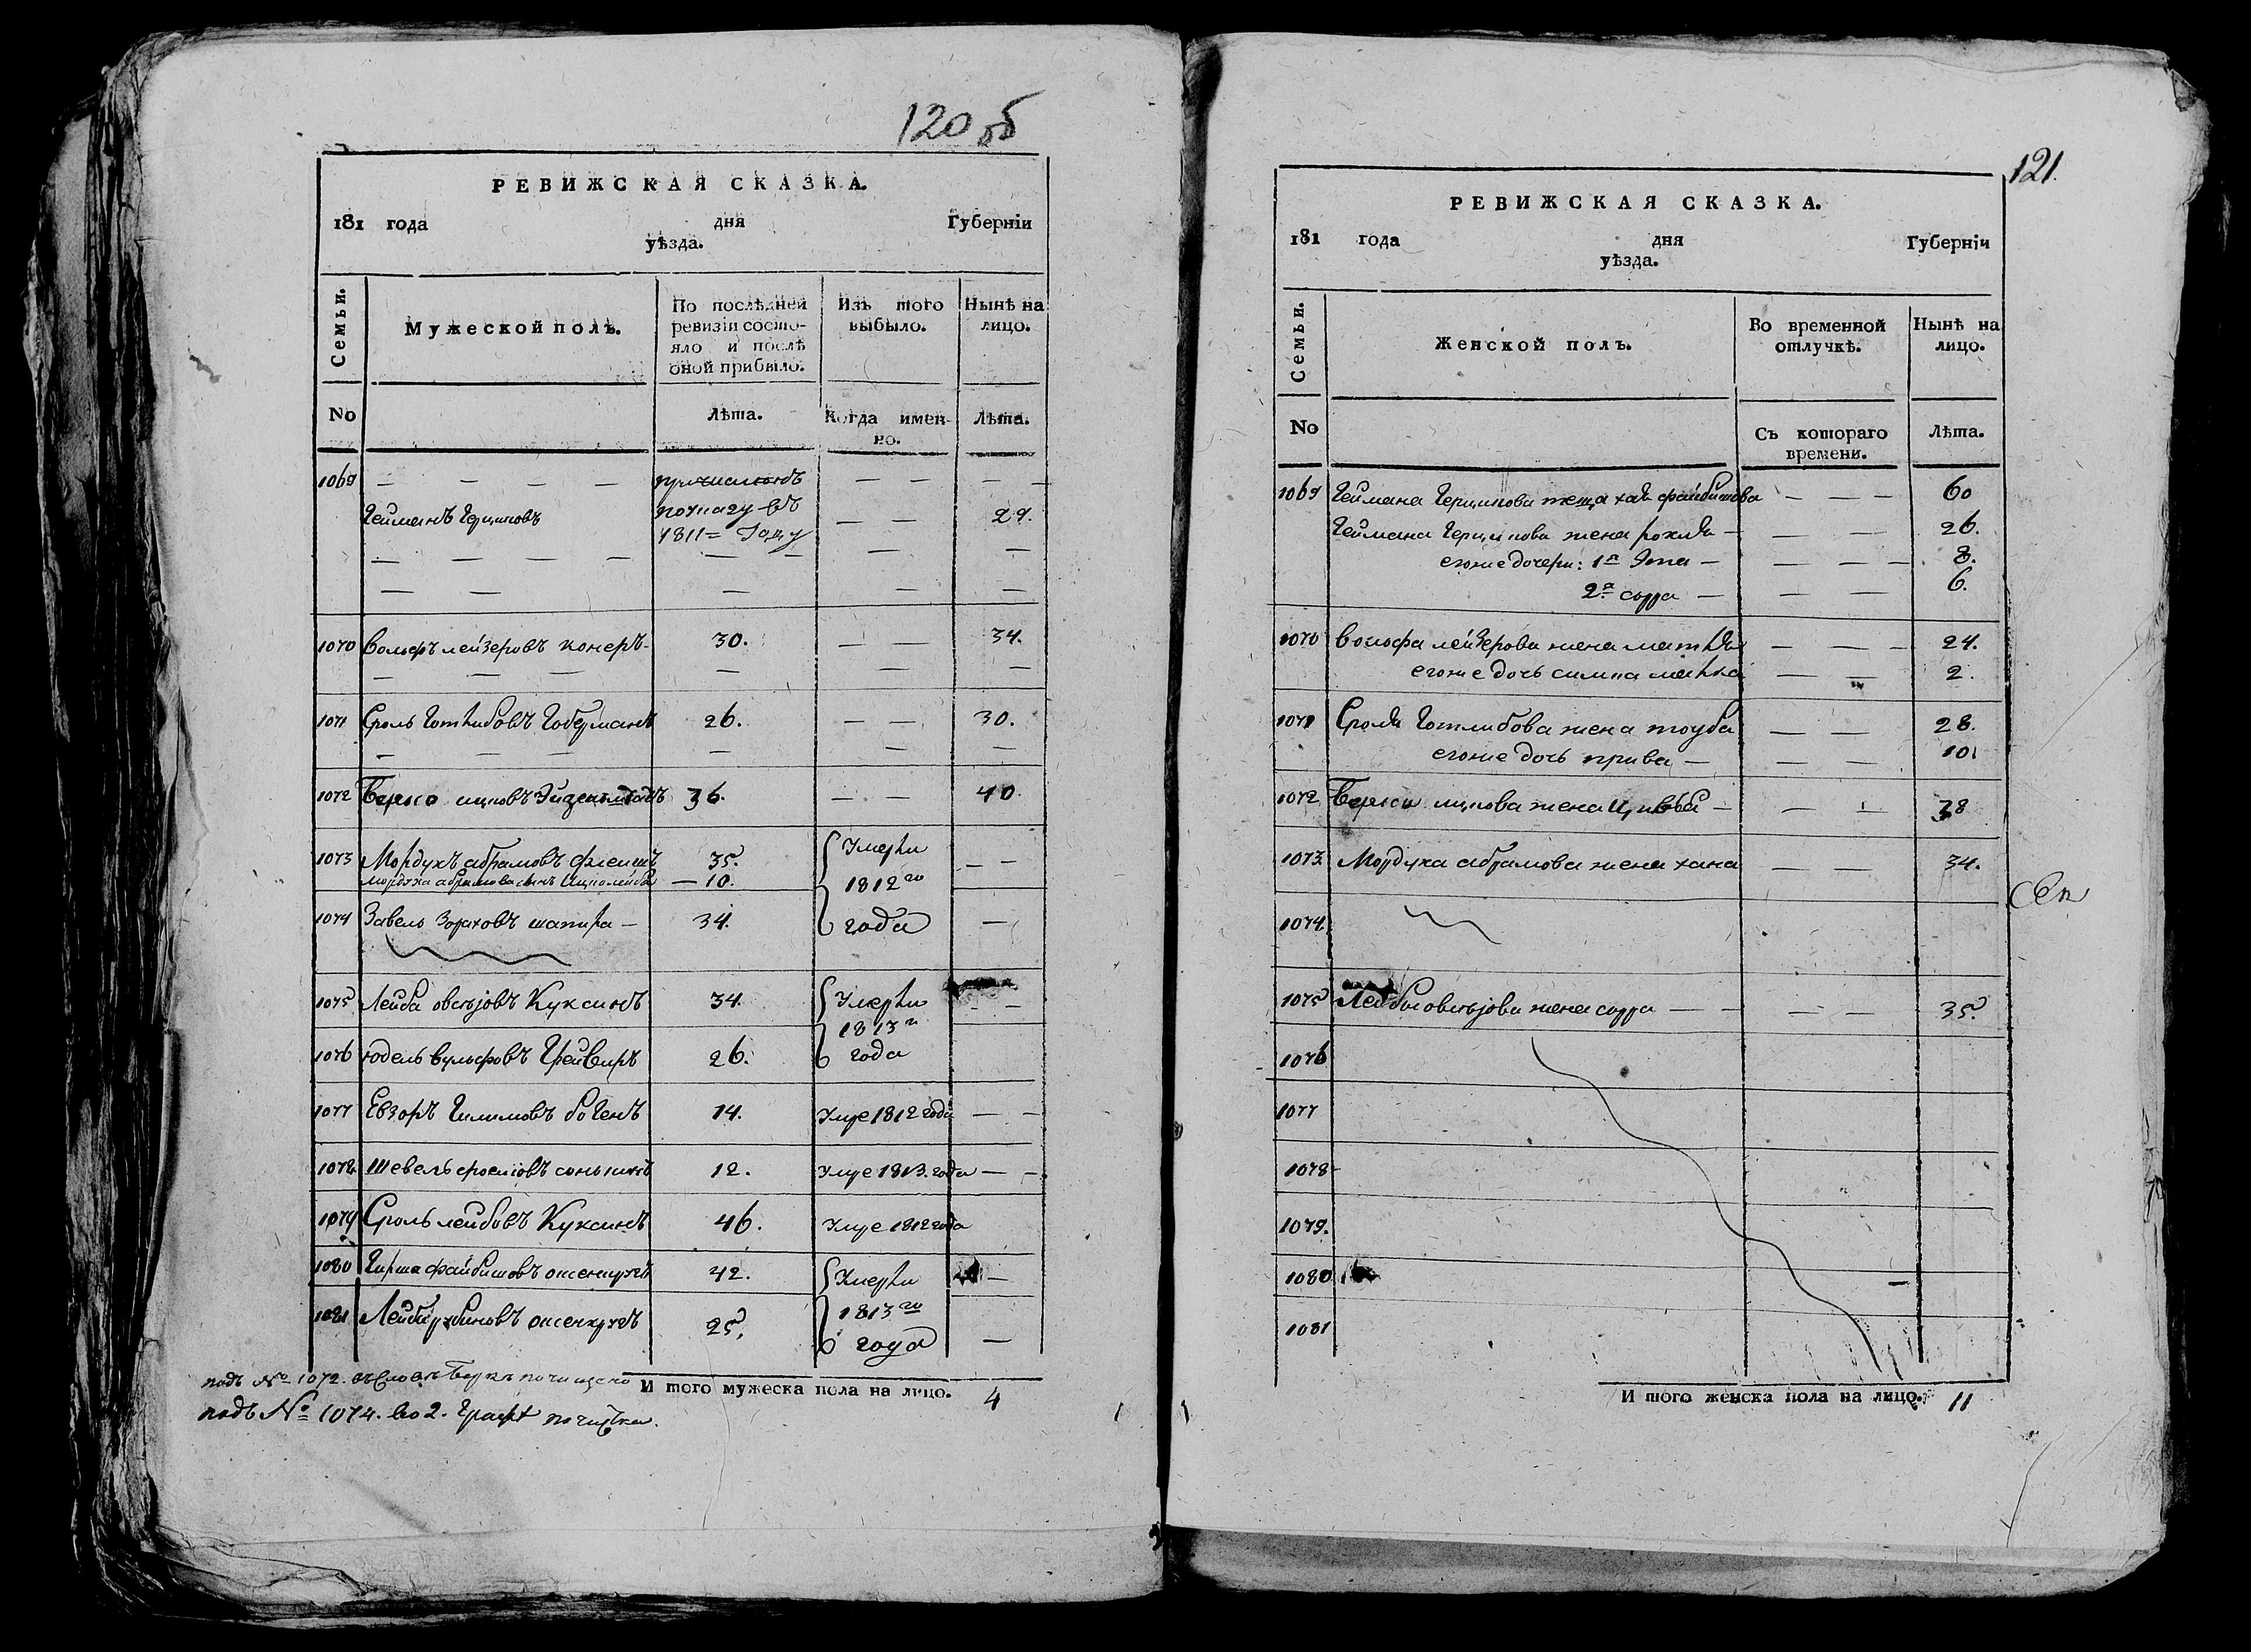 120 об
РЕВИЖСКАЯ СКАЗКА.
181 года дня Губерніи
уѣзда.
Семьи.
Мужеской полъ.
По послѣдней ревизіи состояло и послѣ оной прибыло.
Изъ того выбыло.
Нынѣ на лицо.
No
Лѣта.
Когда именно.
Лѣта.
1069 — — — — — — — —
Гейманъ Герциковъ — — 29.
1811 = Году
1070 Вольфъ лейзеровъ конеръ 30. — — 34.
1071 Сроль Готлибовъ Гоберманъ 26. — — 30.
1072 Берко ицковъ 36. — — 40.
1073 Мордухъ абрамовъ 35. Умерли — —
Мордуха абрамова сынъ — 10. 1812го
1074 Завель Зораховъ шапира — 34. года —
1075 Лейба Куксинъ 34. Умерли — —
1813го
1076 Юдель вульфовъ 26. года
1077 Евзоръ 14. Умре 1812 года — —
1078 Шевель 12. Умре 1813. года — —
1079 Сроль лейбовъ Куксинъ 46. Умре 1812 года
1080 Гирша файбишовъ 42. Умерли —
1813го
1081 Лейба 25. года —
подъ № 1072. почищено
И того мужеска пола на лицо. 4
подъ № 1074. во 2. Графѣ почистка.
121.
РЕВИЖСКАЯ СКАЗКА.
181 года дня Губерніи
уѣзда.
Семьи.
Женской полъ.
Во временной отлучкѣ.
Нынѣ на лицо.
No
Съ котораго времени.
Лѣта.
1069 Геймана Герцикова теща хая файбишова — — — 60
Геймана Герцикова жена рохля — — — 26.
егоже дочери: 1я Эта — — — — 8.
2я сорра — — — 6.
1070 Вольфа лейзерова жена — — — 24.
егоже дочь — — 2.
1071 Сроля Готлибова жена тоуба — — 28.
егоже дочь прива — — — 10
1072 Берки ицкова жена Цивья — — 38
1073. Мордуха абрамова жена хана — — 34.
1074.
1075 Лейбы жена сорра — — — — 35.
1076
1077
1078
1079.
1080
1081
И того женска пола на лицо. 11